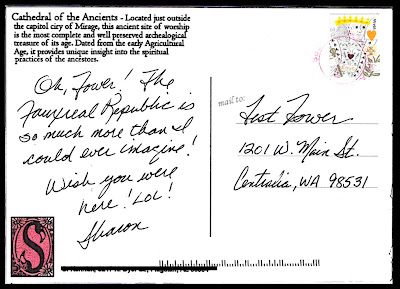 Cathedral of the Ancients - Located just outside
the capitol city of Mirage, this ancient site of worship
is the most complete and well preserved archealogical
treasure of its age. Dated from the early Agricultural
Age, it provides unique insight into the spiritual
practices of the ancestors.
Oh, Fower! The
Fauxreal Republic is
so much more than I
could ever imagine!
Wish you were
here! LOL!
Sharon
S
mail to:
Fower
1201 W. Main St.
Centralia, WA 98531